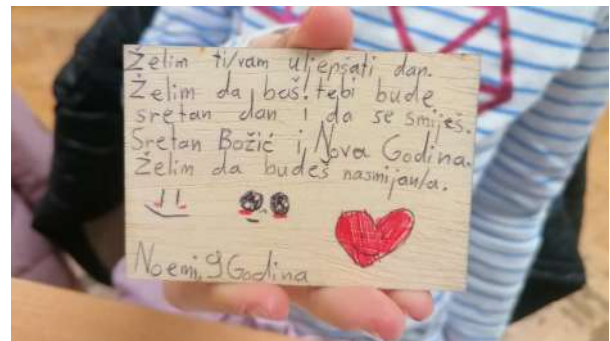 Želim ti/vam uljepšati dan.
Želim da baš! tebi bude
sretan dan i da se smiješ.
Sretan Božić i Nova Godina.
Želim da budeš nasmijan/a.
Noemi, 9 Godina